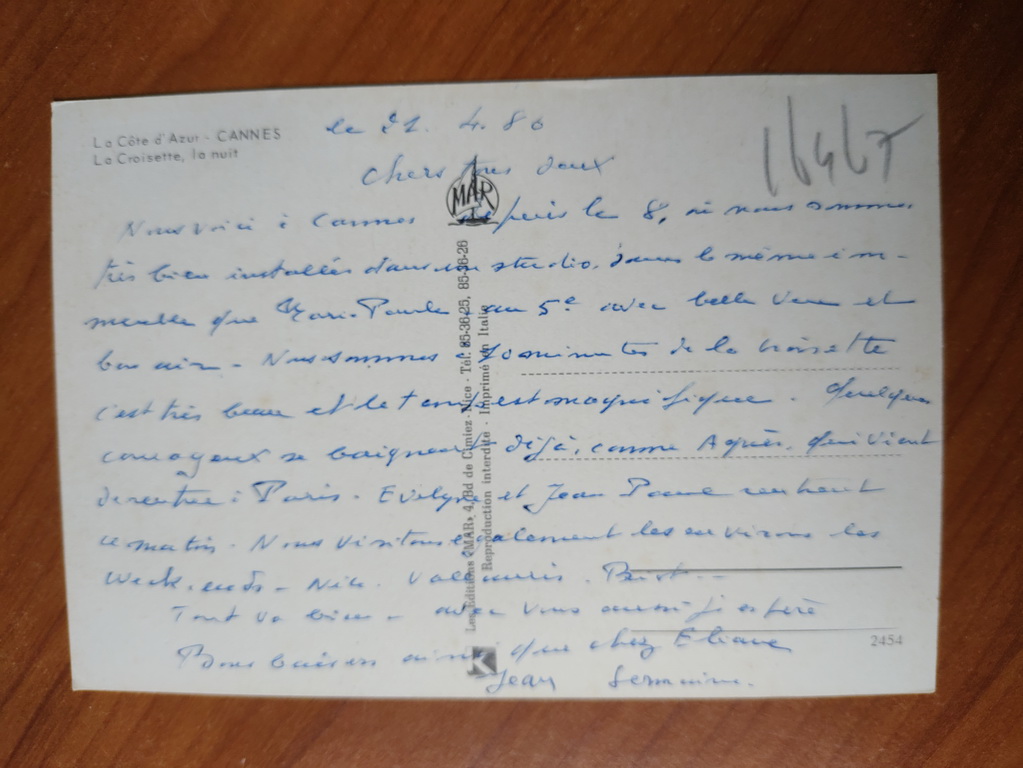 La Côte d'Azur - CANNES
La Croisette, la nuit
le 21. 4. 80
16467
Chers tous deux
MAR
Nous voici à Cannes depuis le 8, où nous sommes
très bien installés dans un studio, dans le même im-
meuble que Marie-Paule, au 5e avec belle vue et
bon air - Nous sommes à 10 minutes de la Croisette
c'est très beau et le temps est magnifique. Quelques
courageux se baignent déjà, comme Agnès, qui vient
de rentrer à Paris. Evelyne et Jean Paul rentrent
ce matin. Nous visitons également les environs les
Week-ends - Nice. Vallauris.
Tout va bien - avec vous aussi j'espère
Bons baisers ainsi que chez Eliane
Jean Germaine.
Les Editions «MAR» 4, Bd de Cimiez - Nice - Tél. 85-36-25, 85-36-26
Reproduction interdite - Imprimé en Italie
K
2454